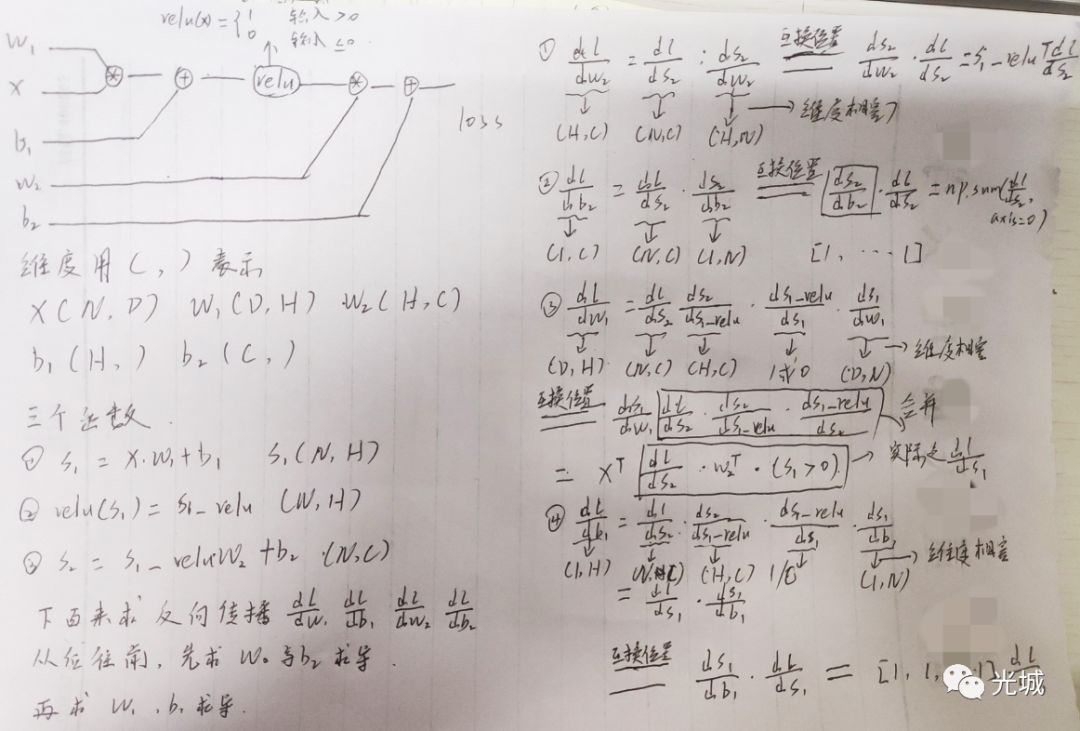 relu(x) = { 1 输入 > 0
0 输入 ≤ 0
W₁
X
b₁
W₂
b₂
* + relu * +
loss
维度用 ( , ) 表示
X(N, D) W₁(D, H) W₂(H, C)
b₁(H, ) b₂(C, )
三个函数
① s₁ = X·W₁+b₁ s₁(N, H)
② relu(s₁) = s₁_relu (N, H)
③ s₂ = s₁_relu·W₂ + b₂ (N, C)
下面来求反向传播 dl/dw₁ dl/db₁ dl/dw₂ dl/db₂
从后往前, 先求 W₂ 与 b₂ 求导.
再求 W₁、b₁ 求导.
① dl/dw₂ = dl/ds₂ · ds₂/dw₂ 互换位置 == ds₂/dw₂ · dl/ds₂ = s₁_relu^T dl/ds₂
→ 维度相容
(H, C) (N, C) (H, N)
② dl/db₂ = dl/ds₂ · ds₂/db₂ 互换位置 == ds₂/db₂ · dl/ds₂ = np.sum(dl/ds₂, axis=0)
(1, C) (N, C) (1, N) [1, ... 1]
③ dl/dw₁ = dl/ds₂ ds₂/ds₁_relu · ds₁_relu/ds₁ · ds₁/dw₁
→ 维度相容
(D, H) (N, C) (H, C) 1或0 (D, N)
互换位置 == ds₁/dw₁ dl/ds₂ · ds₂/ds₁_relu · ds₁_relu/ds₂ → 合并
= X^T dl/ds₂ · W₂^T · (s₁>0) → 实际是 dl/ds₁
④ dl/db₁ = dl/ds₂ · ds₂/ds₁_relu · ds₁_relu/ds₁ · ds₁/db₁
→ 维度相容
(1, H) (H, C) 1/0 (1, N)
= dl/ds₁ · ds₁/db₁
互换位置 == ds₁/db₁ · dl/ds₁ = [1, 1, 1] dl
光城